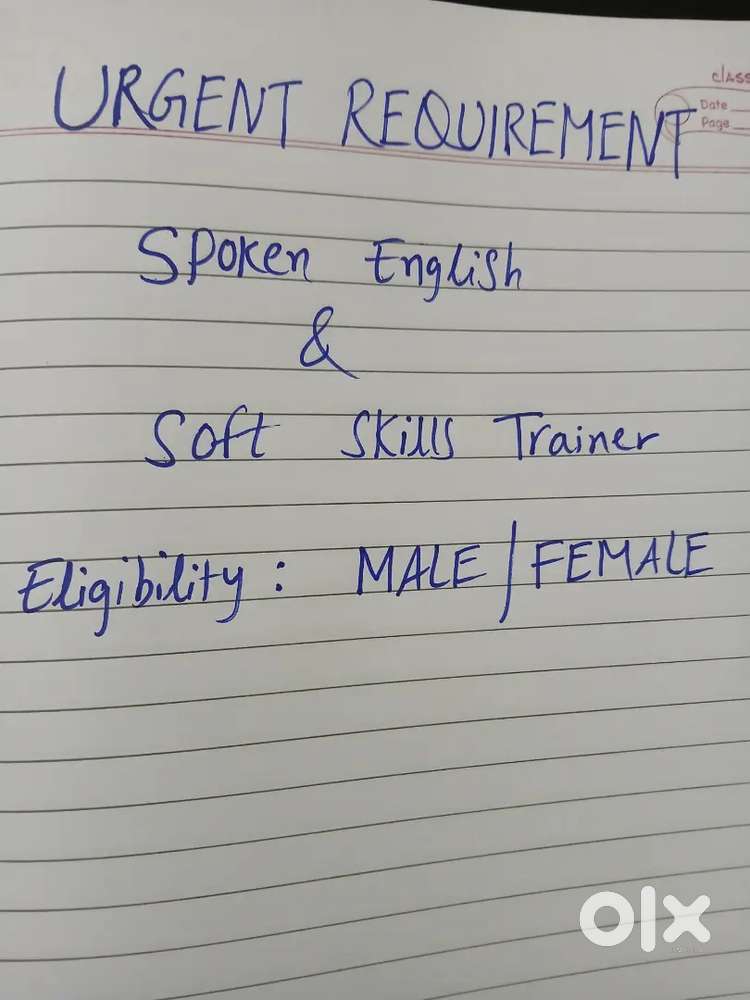 CLASS
Date
Page
URGENT REQUIREMENT
Spoken English
&
Soft Skills Trainer
Eligibility : MALE / FEMALE
olx